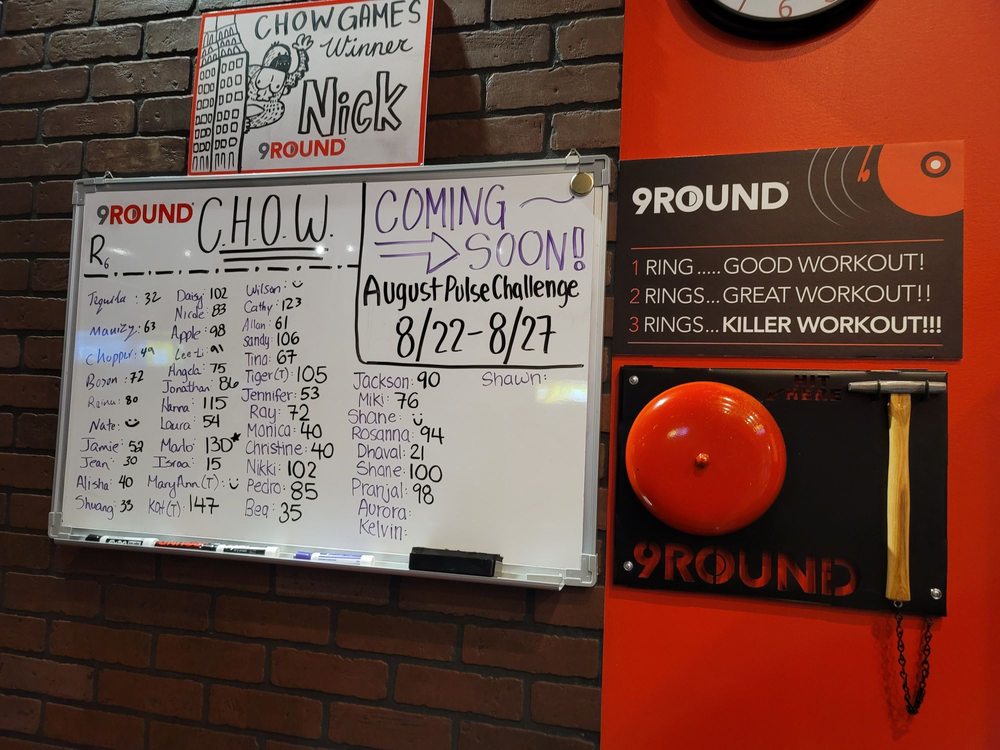 CHOW GAMES
Winner
Nick
9ROUND
9ROUND
C.H.O.W.
R6
COMING
SOON!
August Pulse Challenge
8/22-8/27
Tequila: 32
63
Chopper: 49
72
80
Nate:
Jamie: 52
Jean: 30
Alisha: 40
Shuang: 33
Daisy: 102
Nicole: 83
Apple: 98
Lee-Li: 91
Angela: 75
Jonathan: 86
Hanna: 115
Laura: 54
Marlo: 130
Israa: 15
MaryAnn (T):
Kat (T): 147
Wilson:
Cathy: 123
Allan: 61
Sandy: 106
Tina: 67
Tiger (T): 105
Jennifer: 53
Ray: 72
Monica: 40
Christine: 40
Nikki: 102
Pedro: 85
Bea: 35
Jackson: 90
Miki: 76
Shane:
Rosanna: 94
Dhaval: 21
Shane: 100
Pranjal: 98
Aurora:
Kelvin:
Shawn:
9ROUND
1 RING.....GOOD WORKOUT!
2 RINGS...GREAT WORKOUT!!
3 RINGS...KILLER WORKOUT!!!
HIT
HERE
9ROUND
7 6 5